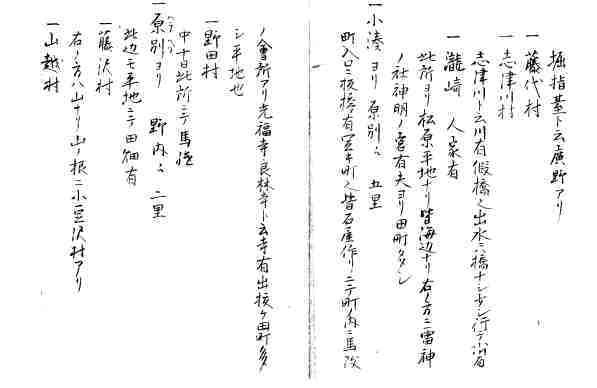 堀指基ト云廣野アリ
一 藤代村
一 志津川村
志津川ト云川有 假橋之 出水ニハ橋ナシ 少シ行テ小沼有
一 瀧崎 人家有
此所ヨリ松原平地ナリ 皆海辺ナリ 右ノ方ニ雷神
ノ社神明ノ宮有 夫ヨリ田町多シ
一 小湊ヨリ 原別ヘ 五里
町入口ニ板橋有 町之皆石屋作リニテ町ノ内ニ馬改
ノ會所アリ 光福寺良林寺ト云寺有 出抜ケ田町多
シ平地也
一 野田村
中十日 此所ニテ馬
一 原別ヨリ 野内ヘ 二里
此辺モ平地ニテ田畑有
一 藤沢村
右ノ方ハ山ナリ 山ノ根ニ小豆沢村アリ
一 山越村